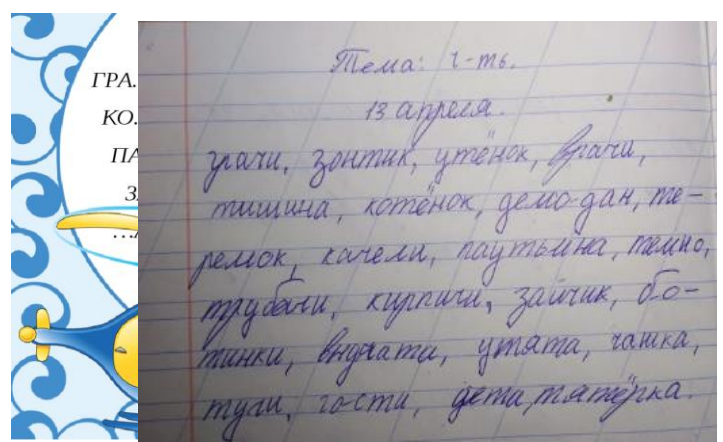 ГРА.
КО.
ПА
Тема: ч-ть.
13 апреля.
грачи, зонтик, утёнок, врачи,
тишина, котёнок, те-
ремок, качели, паутьина, темно,
трубачи, кирпичи, зайчик, бо-
тинки, внучата, утята, чашка,
тучи, гости,